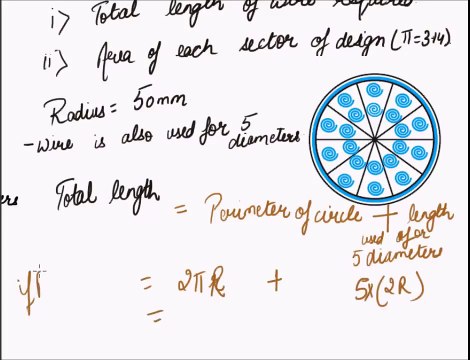 i) Total length of wire required
ii) Area of each sector of design (π=3.14)
Radius = 50mm
- wire is also used for 5 diameters
Total length
= Perimeter of circle + length used for 5 diameters
= 2πR + 5×(2R)
=